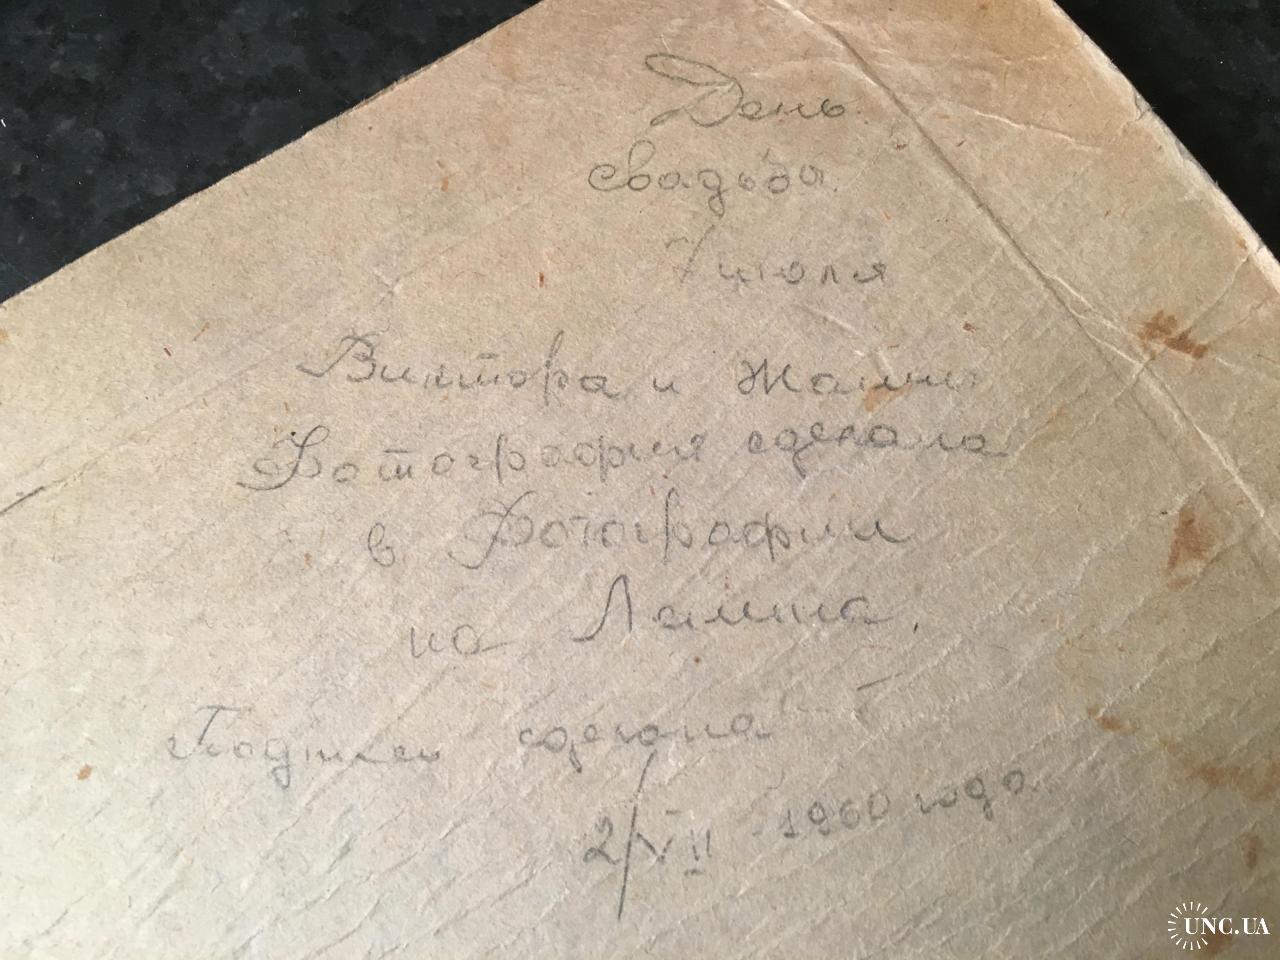 День
свадьбы
июля
Виктора и Жанны
Фотография сделана
в Фотографии
на Ленина.
Подпись сделана
2/VII - 1960 года
UNC.UA